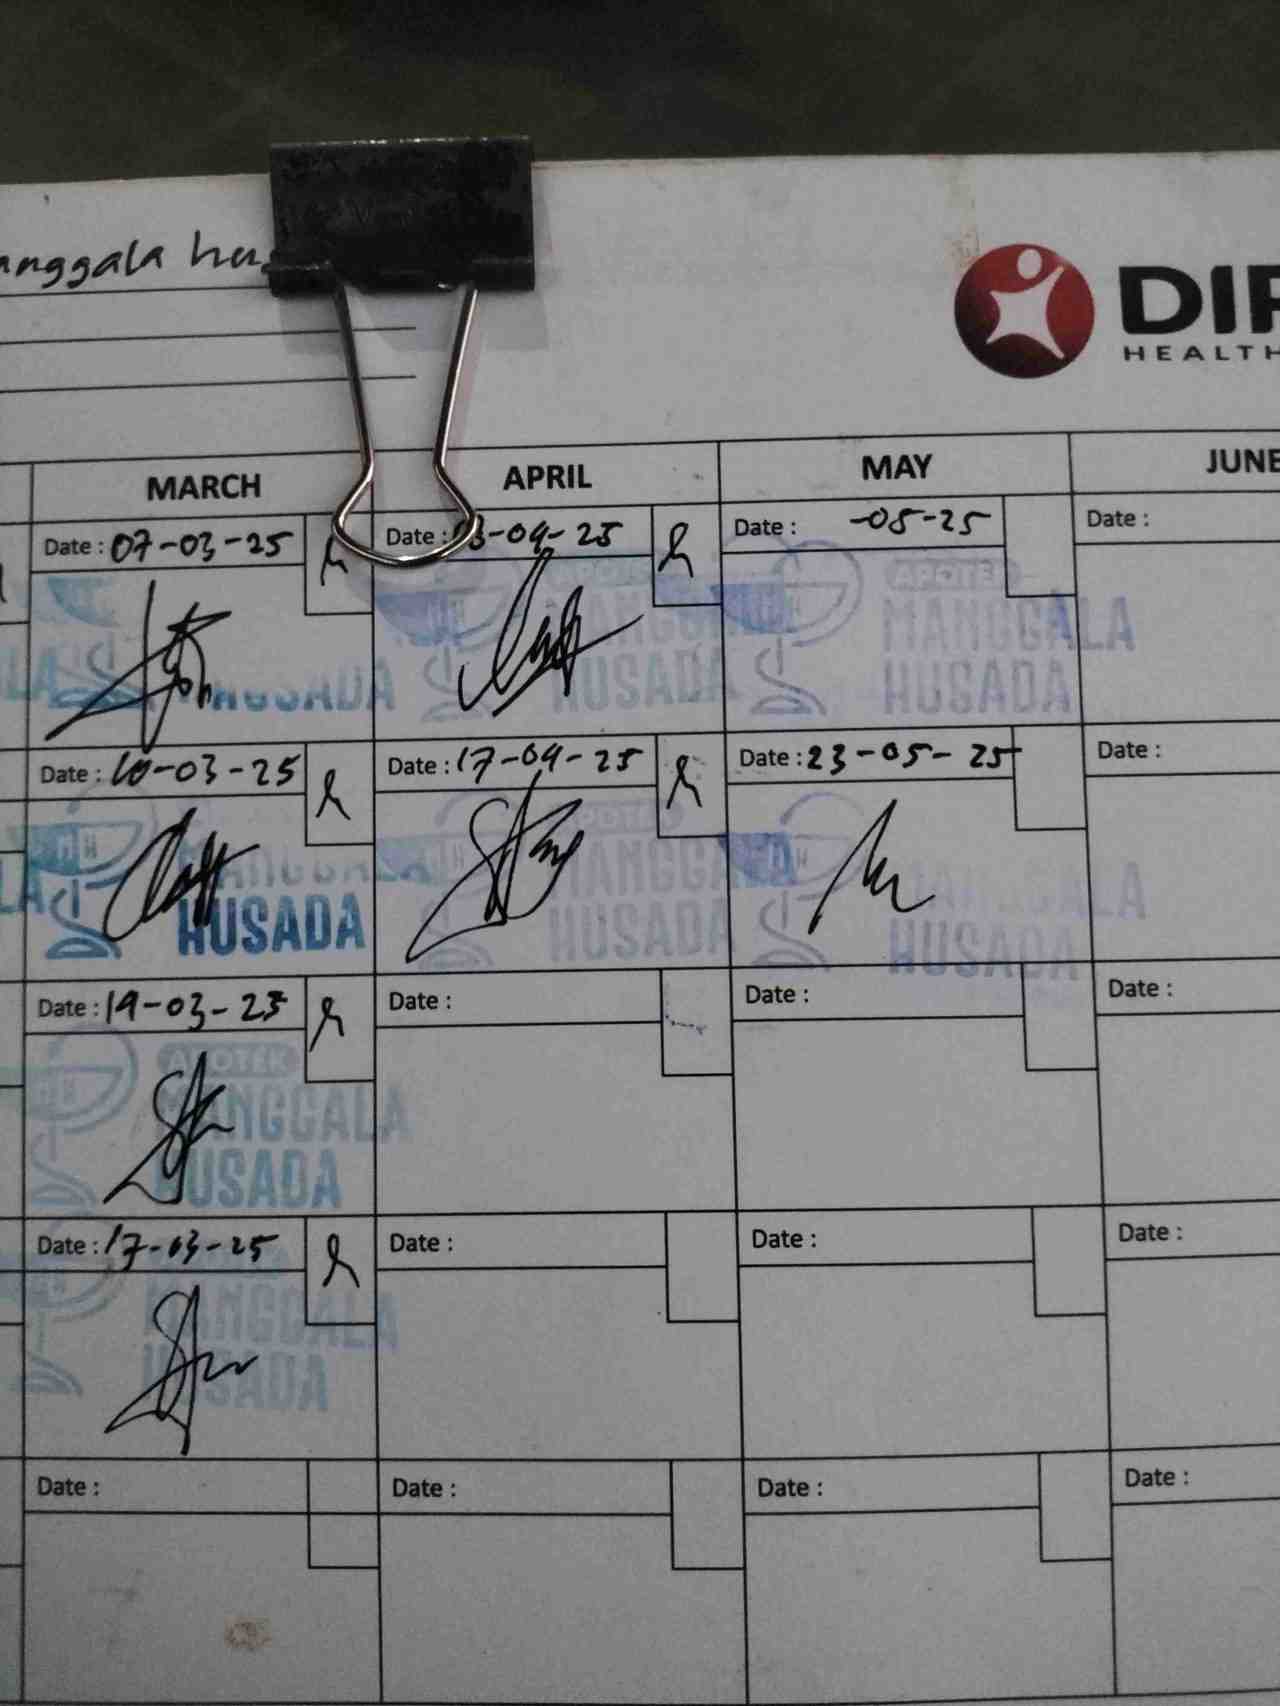 anggala hus
DIP
HEALTH
MARCH APRIL MAY JUNE
Date : 07-03-25 Date : 3-04-25 Date : -05-25 Date :
APOTEK APOTEK
MANGGALA MANGGALA
HUSADA HUSADA HUSADA
Date : 10-03-25 Date : 17-04-25 Date : 23-05-25 Date :
APOTEK
MANGGALA MANGGALA MANGGALA
HUSADA HUSADA HUSADA
Date : 19-03-25 Date : Date : Date :
APOTEK
MANGGALA
HUSADA
Date : 17-03-25 Date : Date : Date :
MANGGALA
HUSADA
Date : Date : Date : Date :